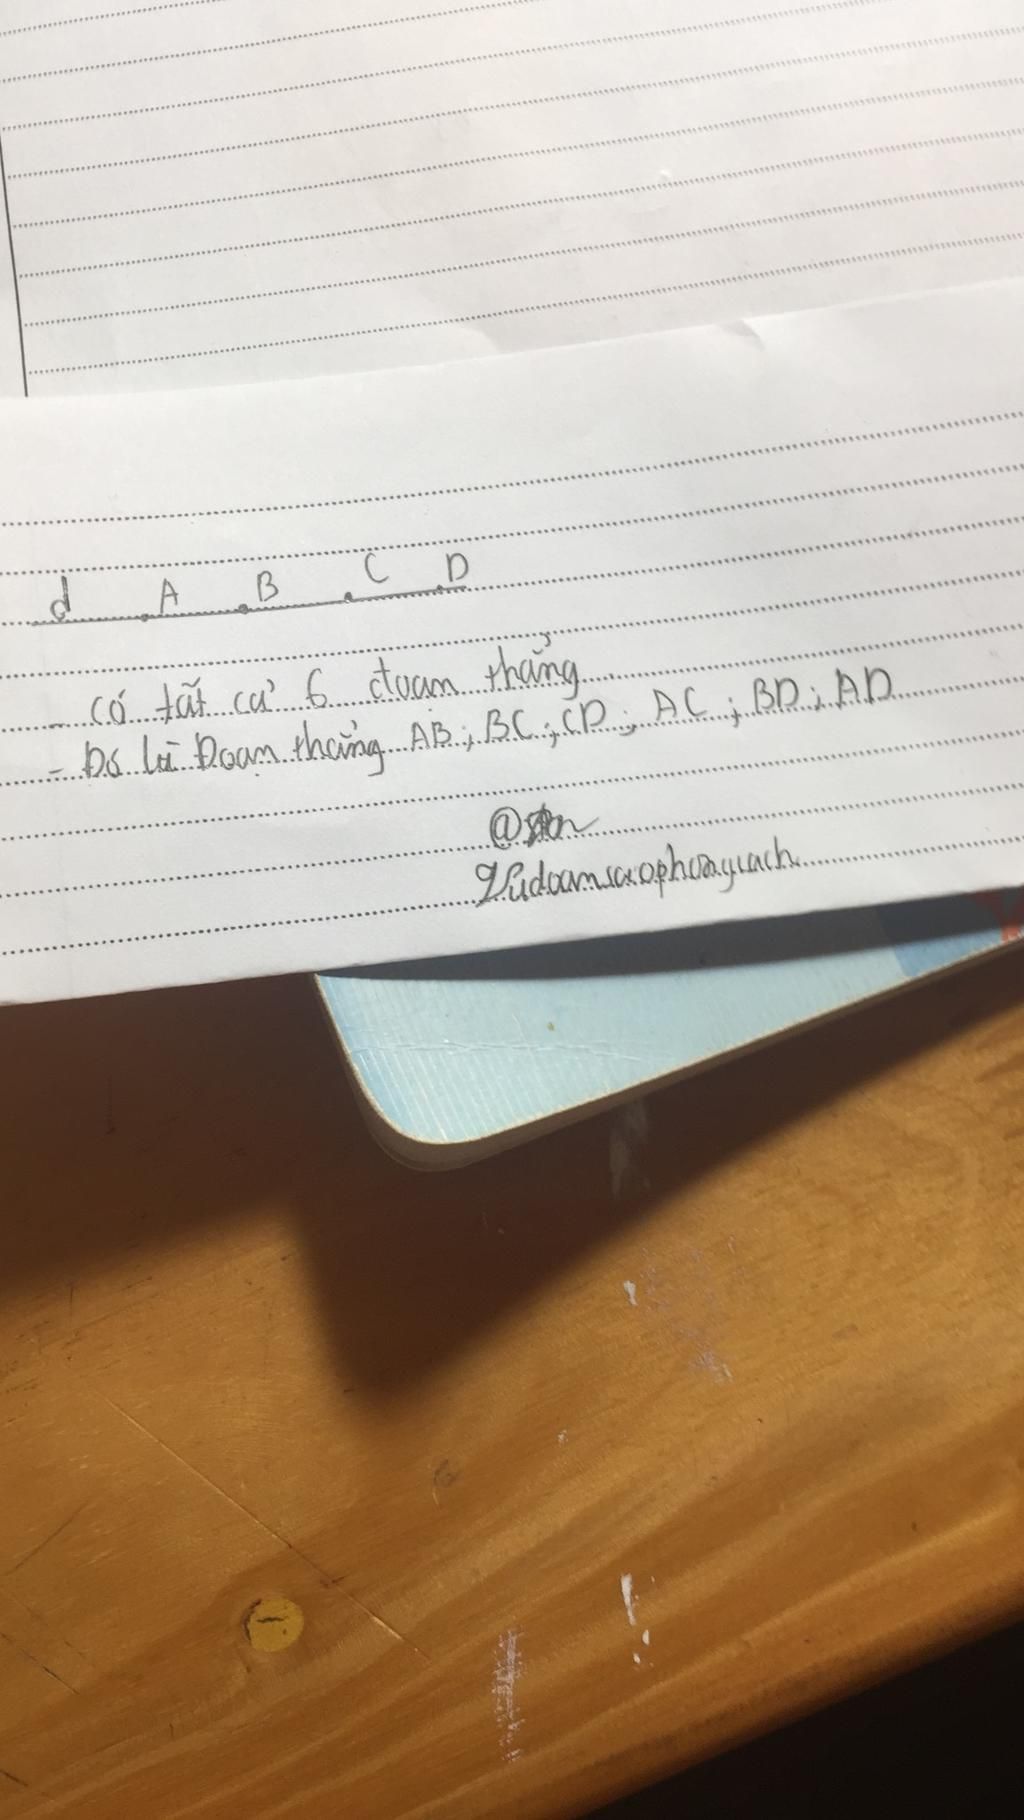 d A B C D
- Có tất cả 6 đoạn thẳng
- Đó là Đoạn thẳng AB; BC; CD; AC; BD; AD